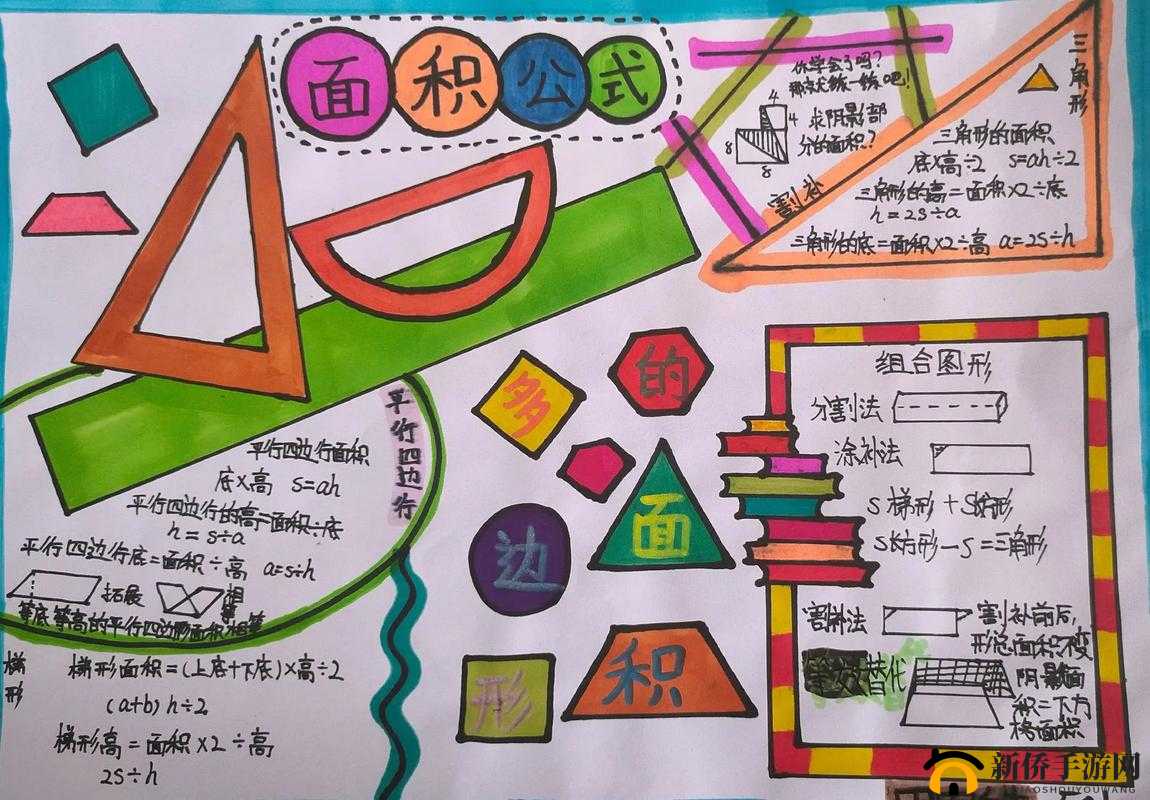 面积公式
你学会了吗?
那就练一练吧!
4
4
求阴影部
分的面积?
8
8
割补
三角形
三角形的面积
底×高÷2 s=ah÷2
三角形的高=面积×2÷底
h=2s÷a
三角形的底=面积×2÷高 a=2s÷h
平行四边行
平行四边行面积
底×高 s=ah
平行四边行的高=面积÷底
h=s÷a
平行四边行底=面积÷高 a=s÷h
拓展
等底等高的平行四边形面积相等
梯形
梯形面积=(上底+下底)×高÷2
(a+b)h÷2
梯形高=面积×2÷高
2s÷h
多
边
形
的
面
积
组合图形
分割法
涂补法
S梯形+S
S长方形-S=三角形
割补法
割补前后,
形态面积不变
等效替代
阴影面
积=下方
面积
新侨手游网
XINQIAOSHOUYOUWANG